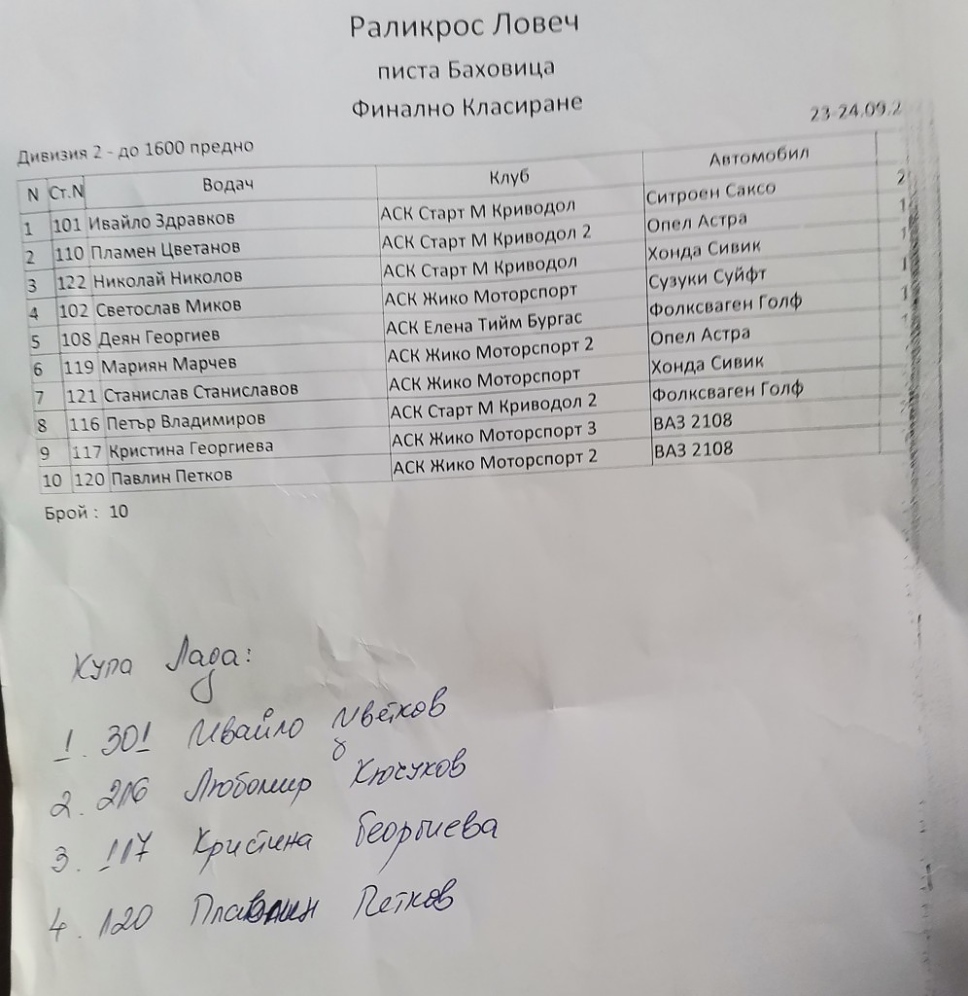 Раликрос Ловеч
писта Баховица
Финално Класиране
23-24.09.2
Дивизия 2 - до 1600 предно
N Ст.N Водач Клуб Автомобил
1 101 Ивайло Здравков АСК Старт М Криводол Ситроен Саксо 2
2 110 Пламен Цветанов АСК Старт М Криводол 2 Опел Астра 1
3 122 Николай Николов АСК Старт М Криводол Хонда Сивик 1
4 102 Светослав Миков АСК Жико Моторспорт Сузуки Суйфт 1
5 108 Деян Георгиев АСК Елена Тийм Бургас Фолксваген Голф 1
6 119 Мариян Марчев АСК Жико Моторспорт 2 Опел Астра
7 121 Станислав Станиславов АСК Жико Моторспорт Хонда Сивик
8 116 Петър Владимиров АСК Старт М Криводол 2 Фолксваген Голф
9 117 Кристина Георгиева АСК Жико Моторспорт 3 ВАЗ 2108
10 120 Павлин Петков АСК Жико Моторспорт 2 ВАЗ 2108
Брой : 10
Купа Лада:
1. 301 Ивайло Цветков
2. 216 Любомир Кючуков
3. 117 Кристина Георгиева
4. 120 Петков